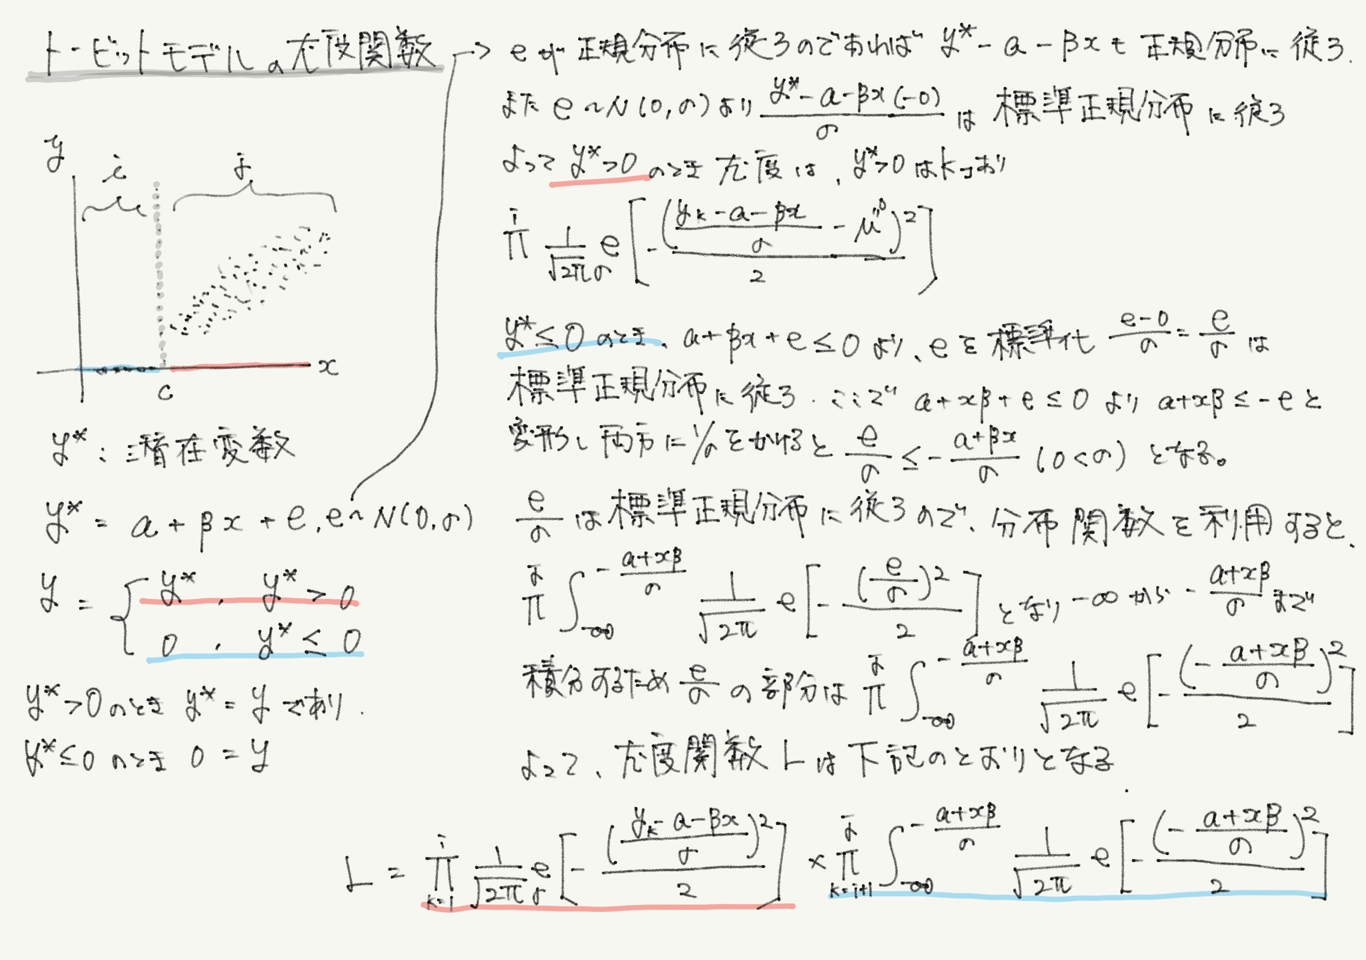 トービットモデルの尤度関数
y
i
j
x
c
y* : 潜在変数
y* = a + βx + e, e~N(0,σ)
y = { y* , y* > 0
0 , y* ≤ 0
y*>0のとき y* = y であり.
y*≤0のとき 0 = y
→ eが正規分布に従うのであれば y* - a - βx も正規分布に従う.
また e~N(0,σ)より (y* - a - βx (-0))/σ は標準正規分布に従う
よって y*>0 のとき尤度は、y*>0はkコあり
i Π 1/√2πσ e [ - ((yk - a - βx)/σ - μ"0)² / 2 ]
y*≤0 のとき、a+βx+e≤0 より、eを標準化 (e-0)/σ = e/σ は
標準正規分布に従う. ここで a+xβ+e≤0 より a+xβ≤-e と
変形し両方に1/σをかけると e/σ ≤ - (a+βx)/σ (0<σ) となる。
e/σ は標準正規分布に従うので、分布関数を利用すると、
j Π ∫ -∞ - (a+xβ)/σ 1/√2π e [ - (e/σ)² / 2 ] となり -∞から - (a+xβ)/σ まで
積分するため e/σ の部分は j Π ∫ -∞ - (a+xβ)/σ 1/√2π e [ - (- (a+xβ)/σ)² / 2 ]
よって、尤度関数Lは下記のとおりとなる
L = i Π k=1 1/√2πσ e [ - ((yk - a - βx)/σ)² / 2 ] × j Π k=i+1 ∫ -∞ - (a+xβ)/σ 1/√2π e [ - (- (a+xβ)/σ)² / 2 ]